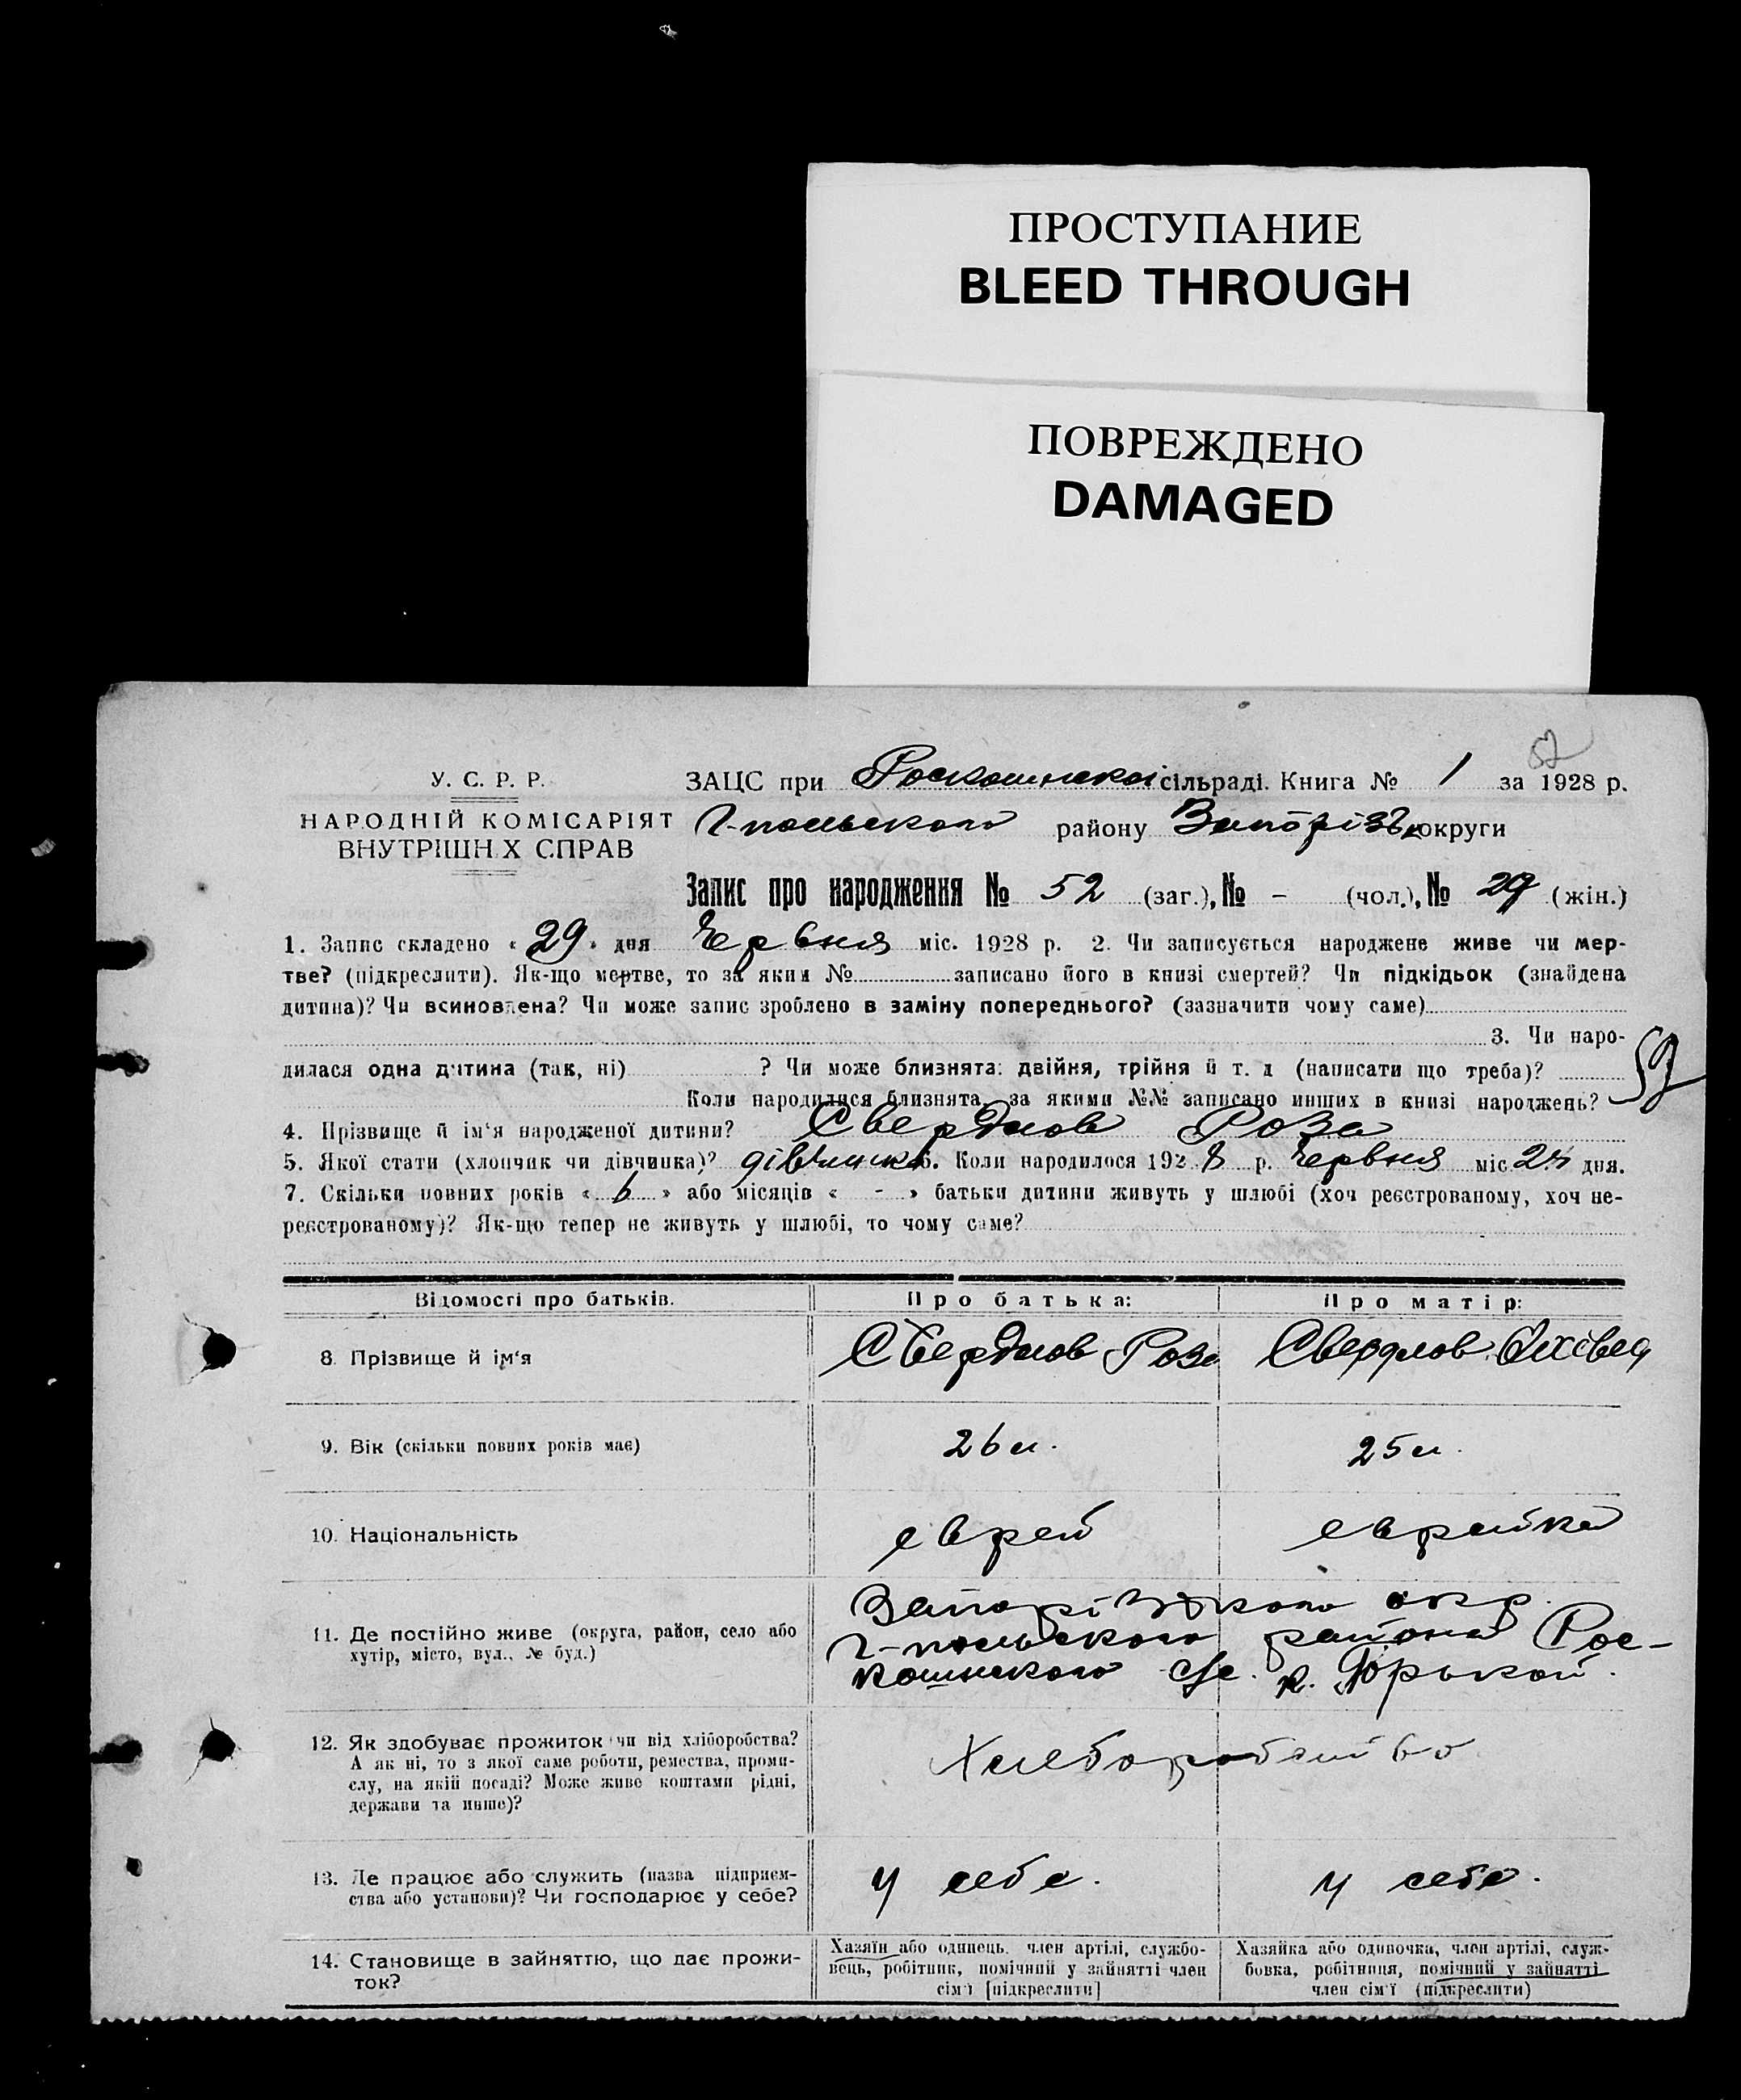 ПРОСТУПАНИЕ
BLEED THROUGH
ПОВРЕЖДЕНО
DAMAGED
52
У. С. Р. Р.
НАРОДНІЙ КОМІСАРІЯТ
ВНУТРІШН Х СПРАВ
ЗАЦС при Роскошнскої сільраді. Книга № 1 за 1928 р.
району Запоріз округи
Запис про народження № 52 (заг.), № - (чол.), № 29 (жін.)
1. Запис складено « 29 » дня Червня міс. 1928 р. 2. Чи записується народжене живе чи мер-
тве? (підкреслити). Як-що мертве, то за яким № записано його в книзі смертей? Чи підкідьок (знайдена
дитина)? Чи всиновлена? Чи може запис зроблено в заміну попереднього? (зазначити чому саме)
3. Чи наро-
дилася одна дитина (так, ні) ? Чи може близнята: двійня, трійня й т. д (написати що треба)?
Коли народилися близнята, за якими №№ записано инших в книзі народжень?
4. Прізвище й ім'я народженої дитини? Свердлов Роза
5. Якої стати (хлопчик чи дівчинка)? дівчинка 6. Коли народилося 192 8 р. Червня міс 24 дня.
7. Скільки повних років « 6 » або місяців « - » батьки дитини живуть у шлюбі (хоч реєстрованому, хоч не-
реєстрованому)? Як-що тепер не живуть у шлюбі, то чому саме?
Відомості про батьків.
Про батька:
Про матір:
8. Прізвище й ім'я
Свердлов
Свердлов
9. Вік (скільки повних років має)
26 л.
25 л.
10. Національність
еврей
еврейка
11. Де постійно живе (округа, район, село або
хутір, місто, вул., № буд.)
окр.
района Рос-
кошнского с/с. к. Горькой.
12. Як здобуває прожиток чи від хліборобства?
А як ні, то з якої саме роботи, ремества, проми-
слу, на якій посаді? Може живе коштами рідні,
держави та инше)?
Хлеборобство
13. Де працює або служить (назва підприєм-
ства або установи)? Чи господарює у себе?
у себе.
у себе.
14. Становище в зайняттю, що дає прожи-
ток?
Хазяїн або одинець, член артілі, службо-
вець, робітник, помічний у зайнятті член
сім'ї [підкреслити]
Хазяйка або одиночка, член артілі, служ-
бовка, робітниця, помічний у зайнятті
член сім'ї (підкреслити)